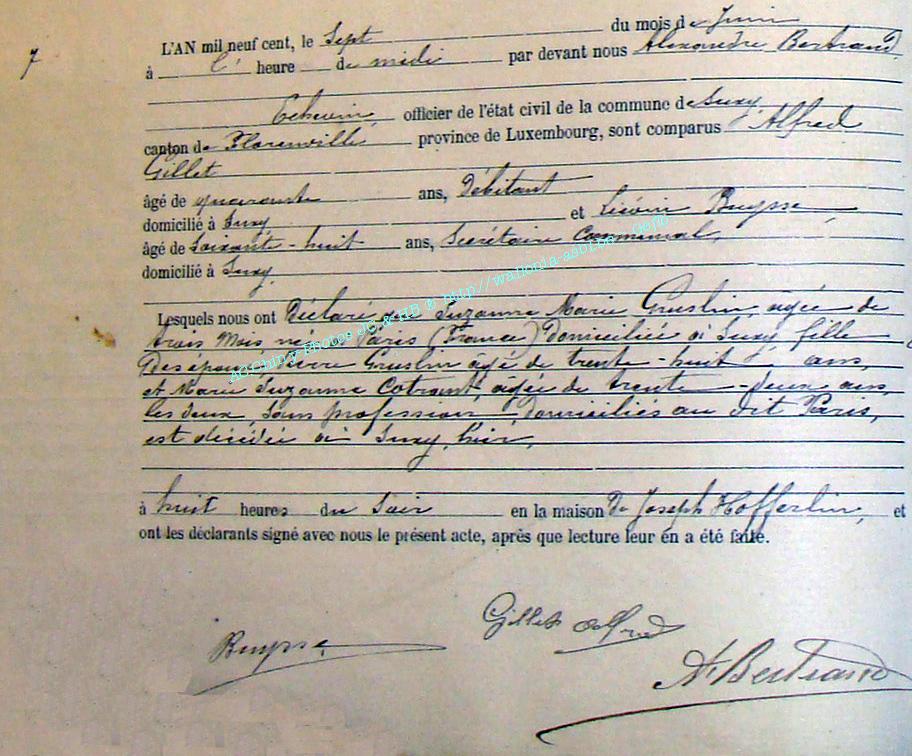 7
L'AN mil neuf cent, le Sept du mois de Juin
à l' heure de midi par devant nous Alexandre Bertrand,
Echevin, officier de l'état civil de la commune de Suxy,
canton de Florenville province de Luxembourg, sont comparus Alfred
Gillet
âgé de quarante ans, Débitant
domicilié à Suxy et Liévin Buysse,
âgé de Soixante-huit ans, Secrétaire Communal,
domicilié à Suxy,
Lesquels nous ont Déclaré que Suzanne Marie Gruslin, agée de
trois Mois née à Paris (France) Domiciliée à Suxy, fille
Des époux Pierre Gruslin âgé de trente-huit ans,
et Marie Suzanne Cotrant, agée de trente-deux ans,
les deux, Sans profession, Domiciliés au dit Paris,
est décédée à Suxy, hier,
à huit heures du Soir en la maison de Joseph Hofferlin, et
ont les déclarants signé avec nous le présent acte, après que lecture leur en a été faite.
Buysse Gillet Alfred
A Bertrand